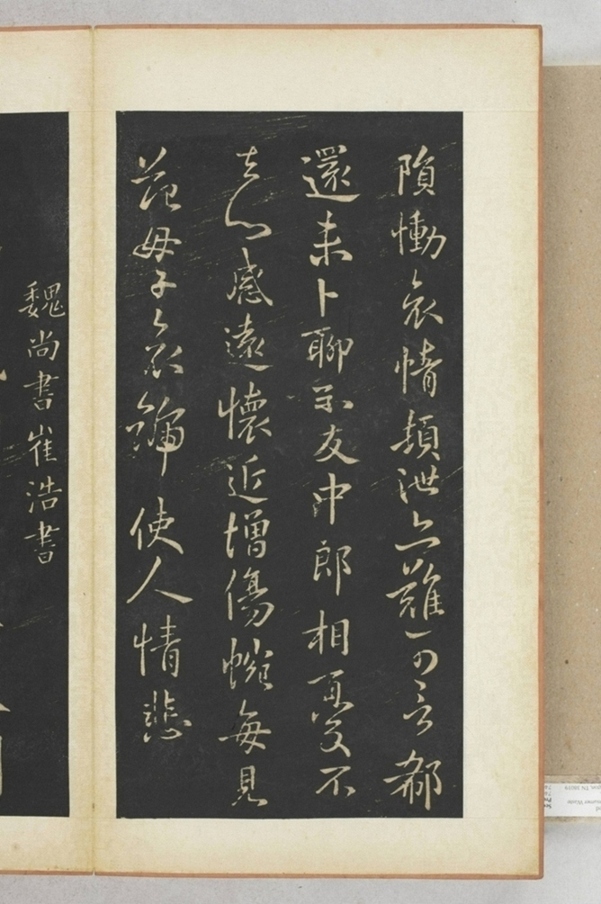 隕慟哀情頓泄亦難可言郗
還未卜聊示友中郎相憂不
去心感遠懷近增傷惋每見
范母子哀號使人情悲
魏尚書崔浩書